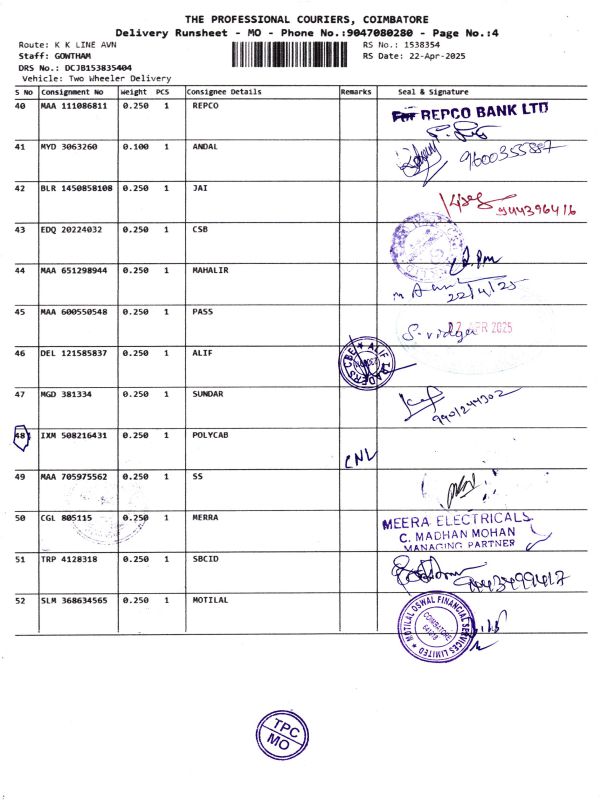 THE PROFESSIONAL COURIERS, COIMBATORE
Delivery Runsheet - MO - Phone No.:9047080280 - Page No.:4
Route: K K LINE AVN RS No.: 1538354
Staff: GOWTHAM RS Date: 22-Apr-2025
DRS No.: DCJB153835404
Vehicle: Two Wheeler Delivery
S No Consignment No Weight PCS Consignee Details Remarks Seal & Signature
40 MAA 111086811 0.250 1 REPCO For REPCO BANK LTD
41 MYD 3063260 0.100 1 ANDAL 9600355887
42 BLR 1450858108 0.250 1 JAI 944396416
43 EDQ 20224032 0.250 1 CSB
44 MAA 651298944 0.250 1 MAHALIR 22/4/25
45 MAA 600550548 0.250 1 PASS S.vidya APR 2025
46 DEL 121585837 0.250 1 ALIF ALIF TRADERS CBE
47 MGD 381334 0.250 1 SUNDAR 9901244302
48 IXM 508216431 0.250 1 POLYCAB CNL
49 MAA 705975562 0.250 1 SS
50 CGL 805115 0.250 1 MERRA MEERA ELECTRICALS
C. MADHAN MOHAN
MANAGING PARTNER
51 TRP 4128318 0.250 1 SBCID
52 SLM 368634565 0.250 1 MOTILAL MOTILAL OSWAL FINANCIAL SERVICES LIMITED
COIMBATORE
641018
TPC
MO